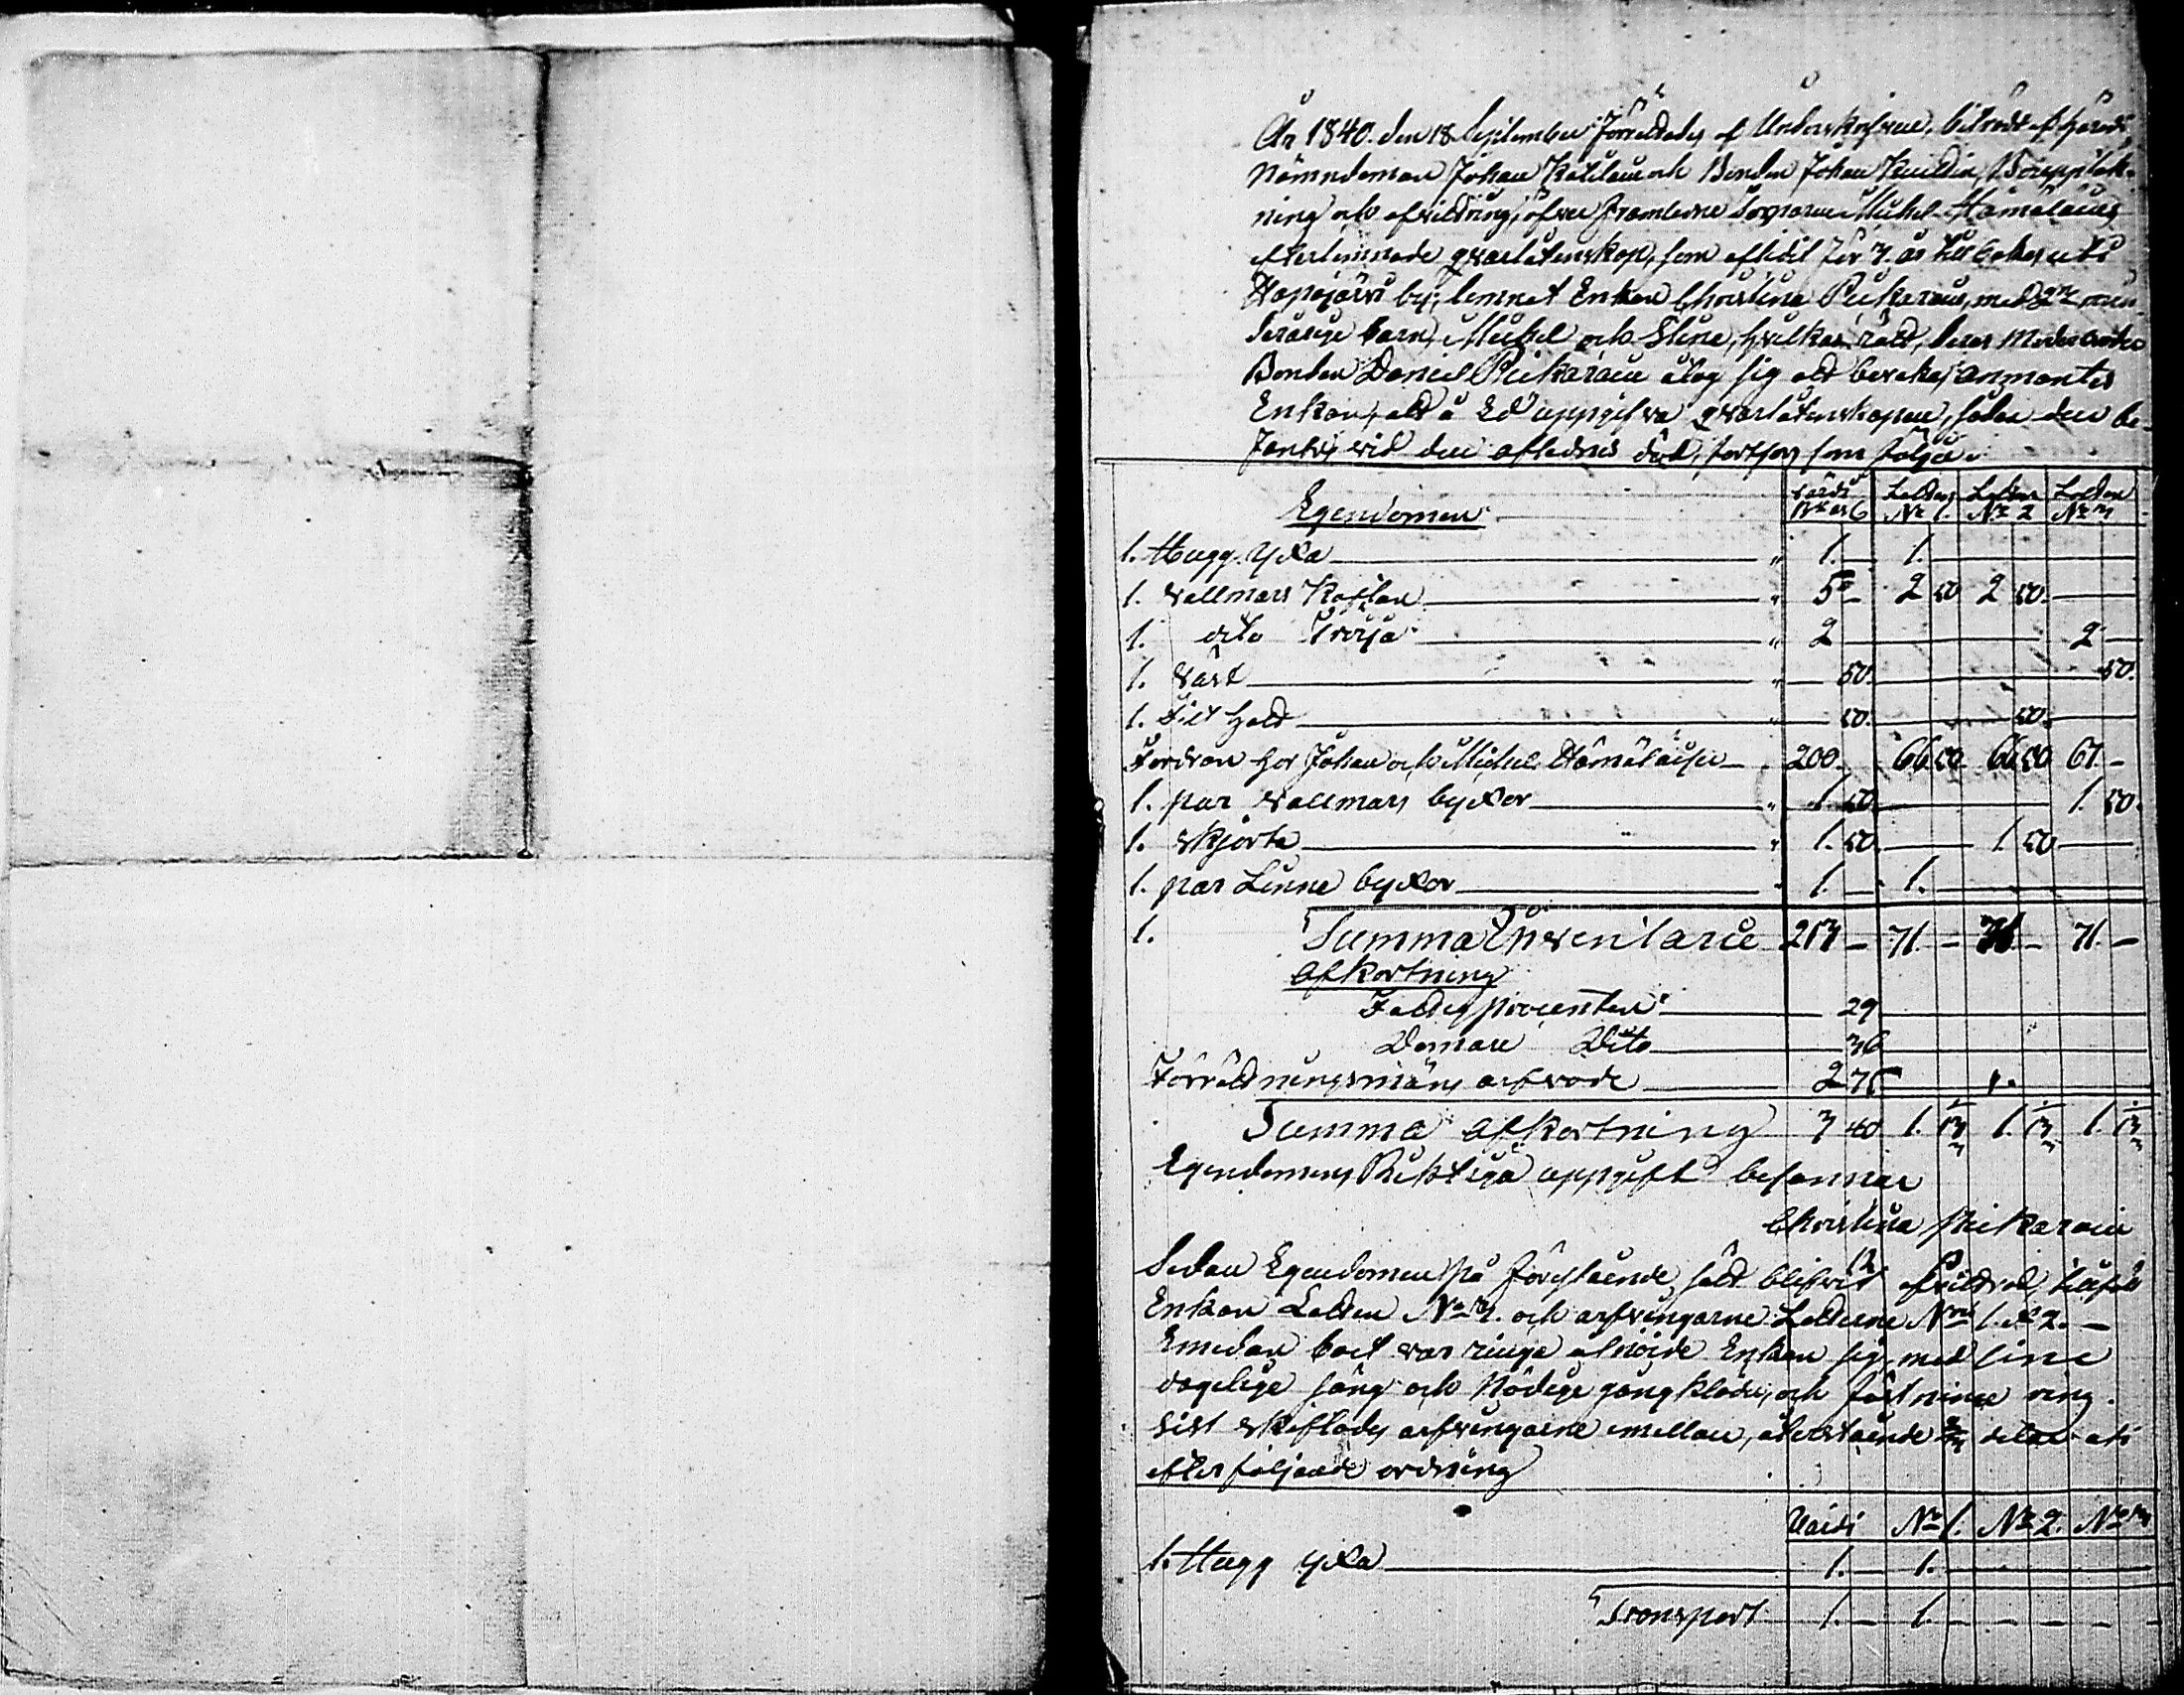 År 1840. den 18 September förrättades af Underskrefvne, biträdd af Härads
Nämndeman Johan och Bonden Johan Bouppteck-
ning och afvittring, öfver framledne Torparen Michel Hämäläines
efterlemnade qvarlåtenskap, som aflidit för 3. år tillbaka, uti
Haapajärvi by, lemnat Enkan Christina Pickarain, med 2ne min-
deråriga barn, Michel och Stina, hvilkas rätt, deras Moder
Bonden Daniel Pickarain åtog sig att bevaka, anmantes
Enkan, att å Ed uppgifva qvarlåtenskapen, sådan den be-
fants, vid den aflednes död, fortfors som följer.
Egendomen Värde Lotten Lotten Lotten
Bko Rs No 1. No 2 No 3
1. Hugg Yxa " 1. 1.
1. Vallmars Kaftan " 5 2 50 2 50.
1. dito Tröja " 2 2
1. Väst " 50. 50.
1. Filt Hatt " 50. 50.
Fordran hos Johan och Michel Hämäläisen 200. 66 50 66 50 67 -
1. par Vallmars byxor " 1 50 1 50.
1. Skjorta " 1. 50. 1 50
1. par Linne byxor " 1. 1.
1. Summa Inventarie 213 - 71 - 71. - 71. -
Afkortning
Fattigprocenten 29
Domare Dito 36
Förrättningsmäns arfvode 2 75
Summa afkortning 3 40 1. 13 1/3 1. 13 1/3 1. 13 1/3
Egendomens Riktiga uppgift besannar
Christina Pickarain
Sedan Egendomen på föreslående sätt blifvit afvittrad, tillföll
Enkan Lotten No 3. och arfvingarne Lotterne No 1. & 2. -
Emedan boet var ringa åtnöjde Enkan sig, med sine
dagelige säng och Nödige gång kläder, och fästninne ring.
Sist skiftades arfvingarne emellan, återstående 2/3 delar uti
efterföljande ordning
Värde No 1. No 2. No 3
1. Hugg Yxa 1. - 1. -
Transport 1. - 1. - - - - -